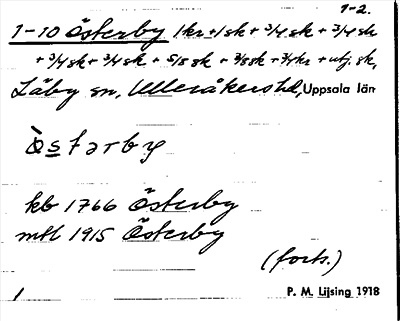 1-2.
1-10 Österby 1 kr + 1 sk + 3/4 sk + 3/4 sk
+ 3/4 sk + 3/4 sk + 5/8 sk + 3/8 sk + 3/4 kr + utj. sk,
Läby sn, Ulleråkers hd, Uppsala län
Östərby
kb 1766 Österby
mtl 1915 Österby
(forts.)
1 P. M. Lijsing 1918